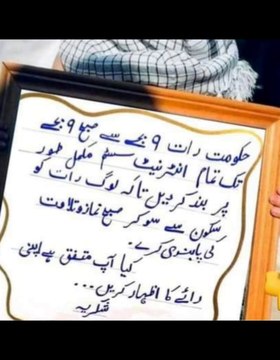 حکومت رات ۹ بجے سے صبح ۹ بجے
تک تمام انٹرنیٹ سسٹم مکمل طور
پر بند کر دیں تاکہ لوگ رات کو
سکون سے سو کر صبح نماز و تلاوت
کی پابندی کرے۔
کیا آپ متفق ہے اپنی
رائے کا اظہار کریں ۔۔۔
شکریہ